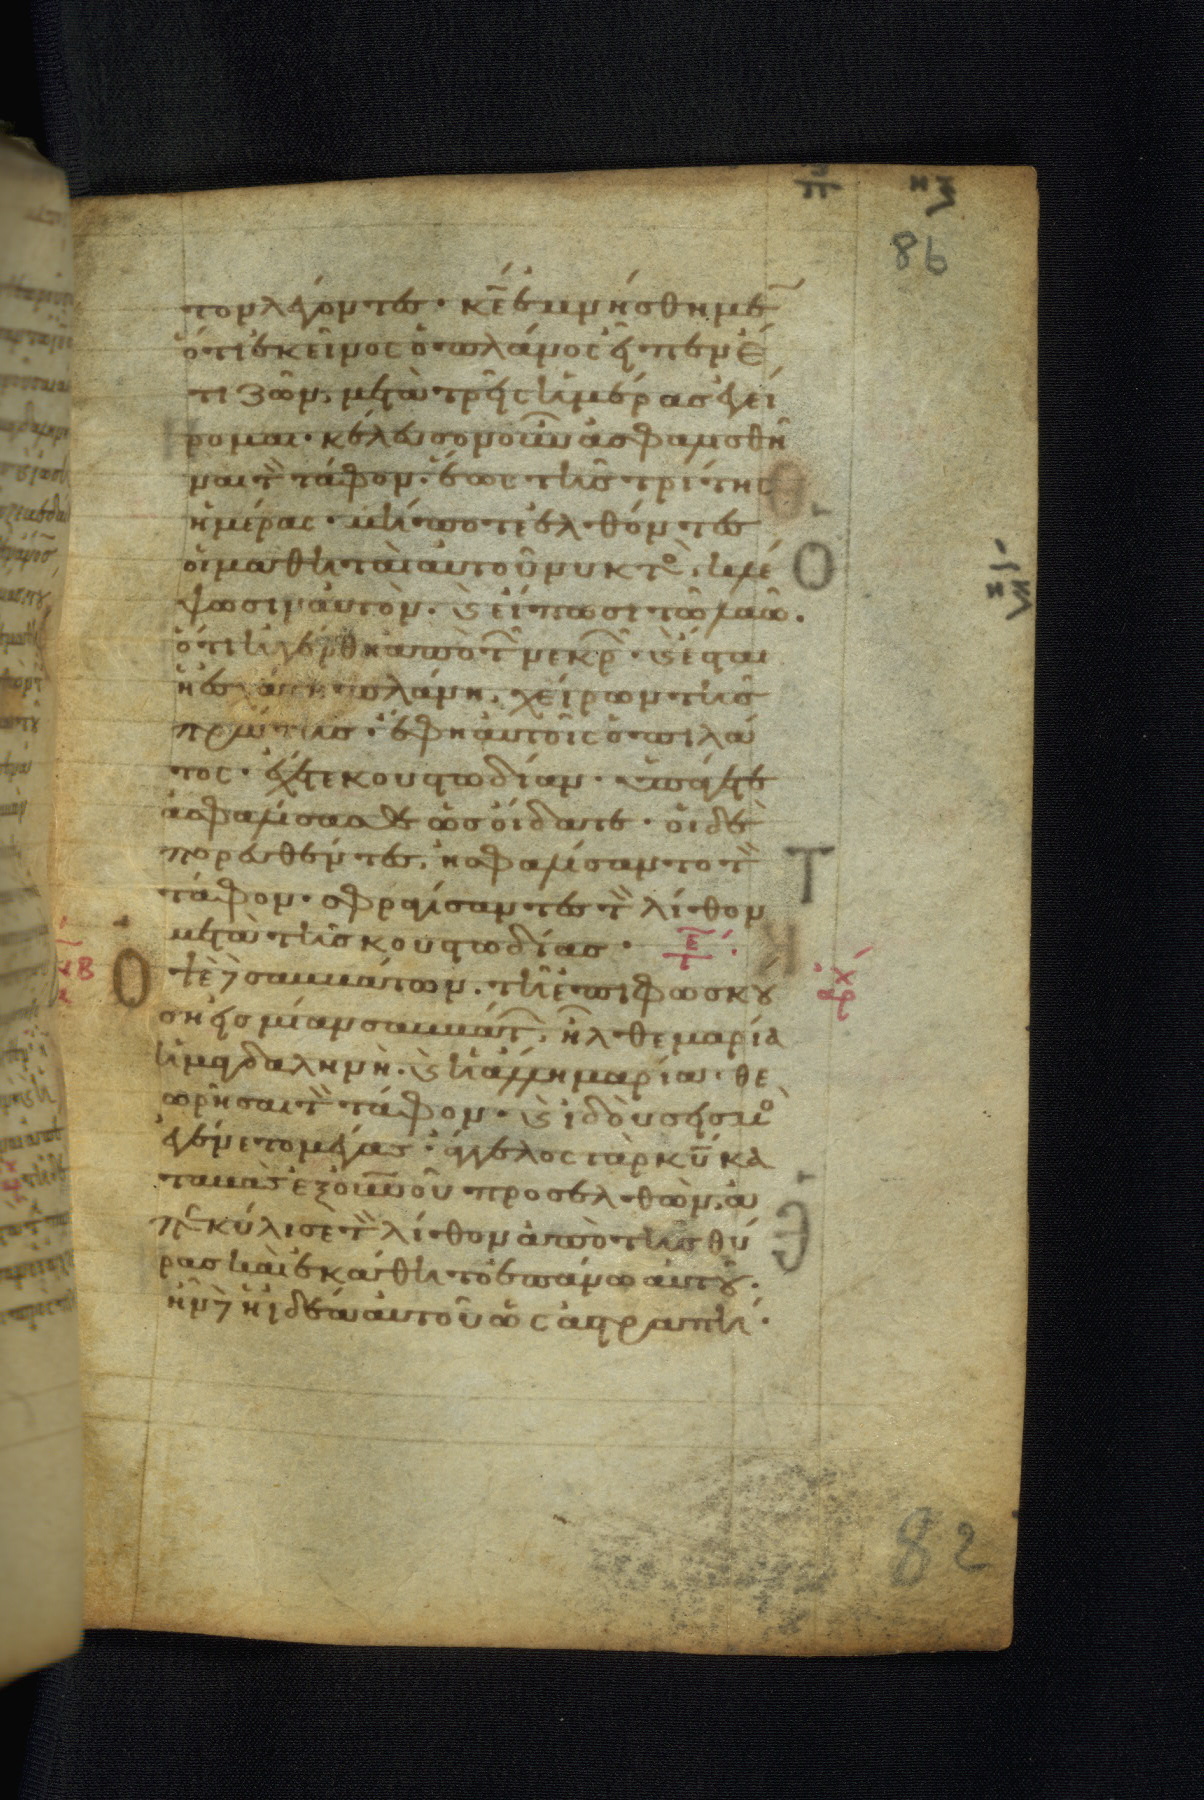 86
τον λέγοντες· κε̄ ἐμνήσθημεν
ὅτι ἐκεῖνος ὁ πλάνος εἶπεν ἔ
τι ζῶν. μετὰ τρεῖς ἡμέρας ἐγεί
ρομαι· κέλευσον οὖν ἀσφαλισθῆ
ναι τὸν τάφον. ἕως τῆς τρίτης
ἡμέρας· μήποτε ἐλθόντες
οἱ μαθηταὶ αὐτοῦ νυκτὸς κλέ
ψωσιν αὐτὸν. καὶ εἴπωσι τῶ λαῶ.
ὅτι ἠγέρθη ἀπὸ τῶν νεκρῶν· καὶ ἔσται
ἡ ἐσχάτη πλάνη. χείρων τῆς
πρώτης· ἔφη αὐτοῖς ὁ πιλᾶ
τος· ἔχετε κουστωδίαν· ὑπάγετε
ἀσφαλίσασθε ὡς οἴδατε· οἱ δὲ
πορευθέντες. ἠσφαλίσαντο τὸν
τάφον· σφραγίσαντες τὸν λίθον
μετὰ τῆς κουστωδίας·
Ὀψὲ δὲ σαββάτων. τῆ ἐπιφωσκού
ση εἰς μίαν σαββάτων. ἦλθε μαρία
ἡ μαγδαληνὴ. καὶ ἡ ἄλλη μαρία· θε
ωρῆσαι τὸν τάφον· καὶ ἰδοὺ σεισμὸς
ἐγένετο μέγας· ἄγγελος γὰρ κῡ κα
ταβὰς ἐξ οὐνοῦ προσελθὼν. ἀ
πεκύλισε τὸν λίθον ἀπὸ τῆς θύ
ρας καὶ ἐκάθητο ἐπάνω αὐτοῦ.
ἦν δὲ ἡ ἰδέα αὐτοῦ ὡς ἀστραπὴ·
82